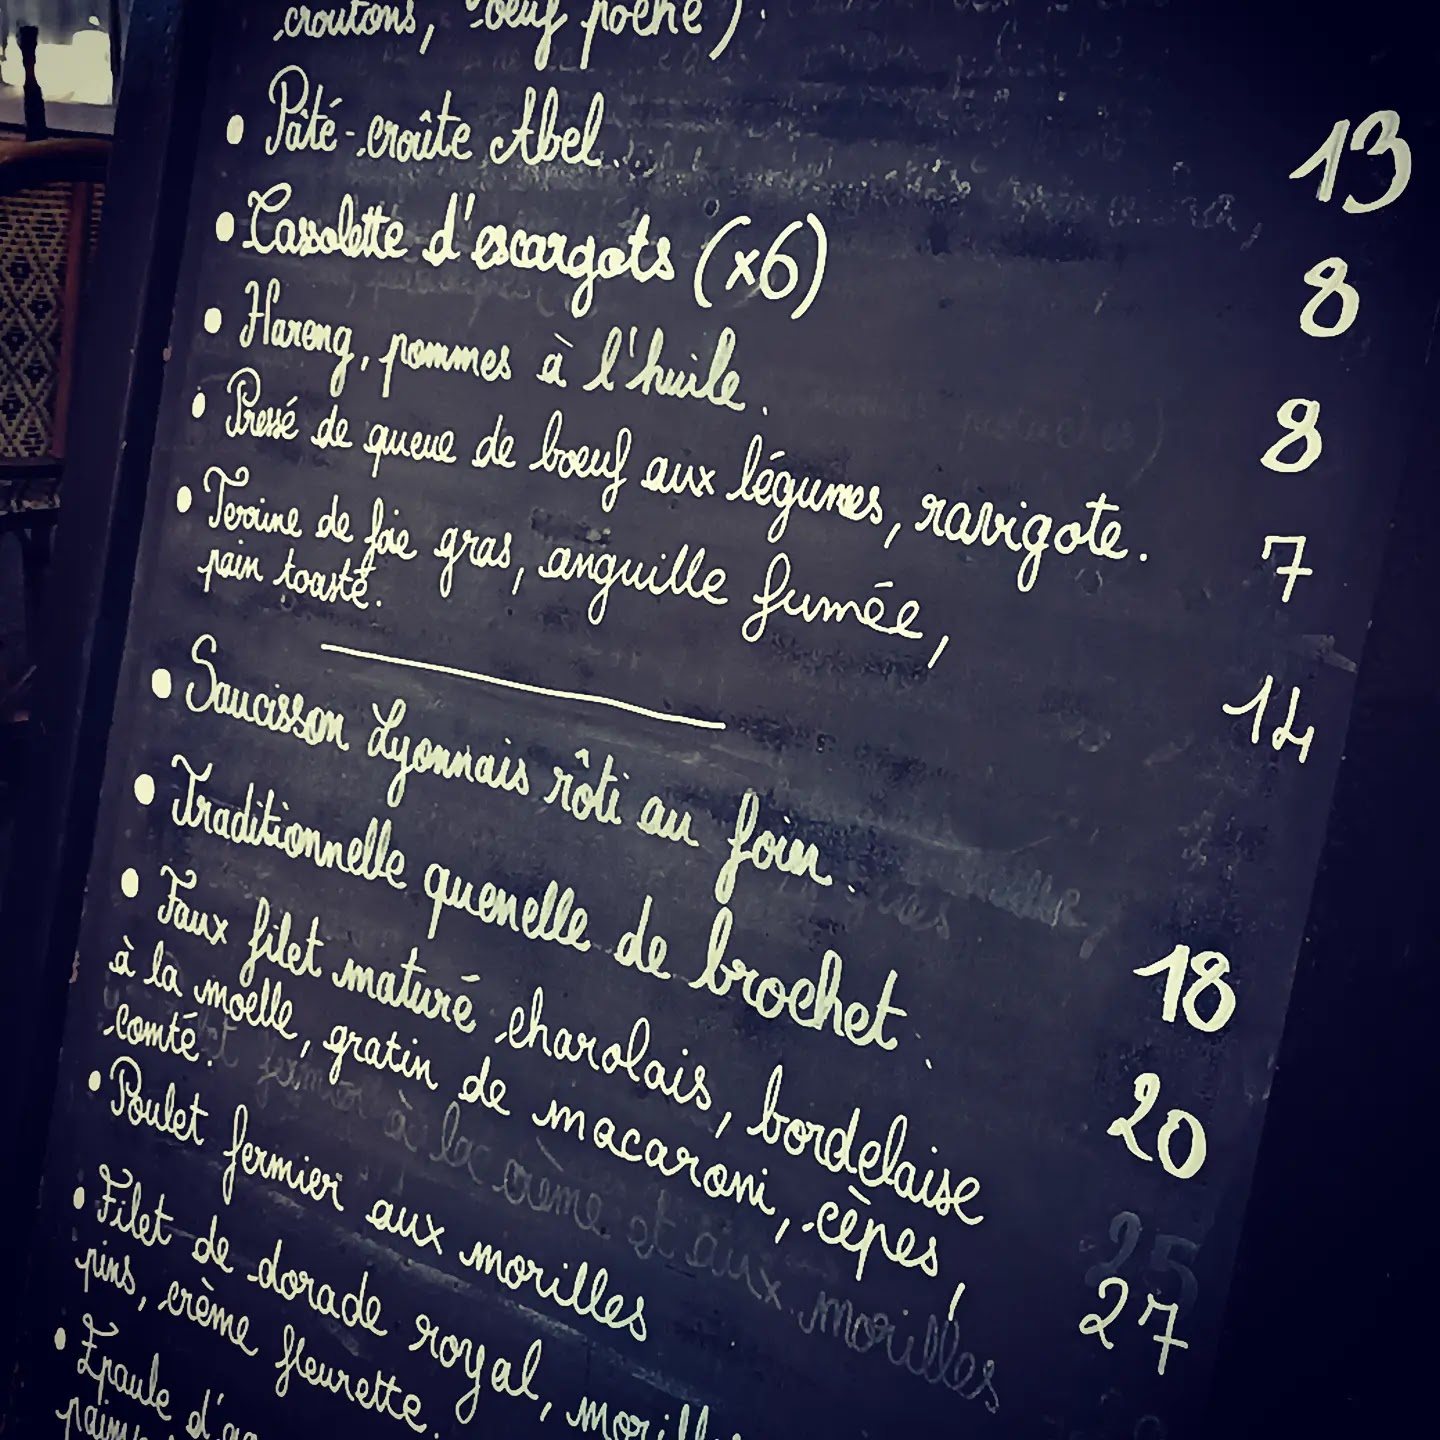 croutons, oeuf poché).
• Pâté-croûte Abel. 13
• Cassolette d'escargots (x6) 8
• Hareng, pommes à l'huile. 8
• Pressé de queue de boeuf aux légumes, ravigote. 7
• Terrine de foie gras, anguille fumée,
pain toasté. 14
• Saucisson Lyonnais rôti au foin. 18
• Traditionnelle quenelle de brochet. 20
• Faux filet maturé charolais, bordelaise
à la moelle, gratin de macaroni, cèpes,
comté. 27
• Poulet fermier aux morilles
• Filet de dorade royal,
pins, crème fleurette.
• Epaule